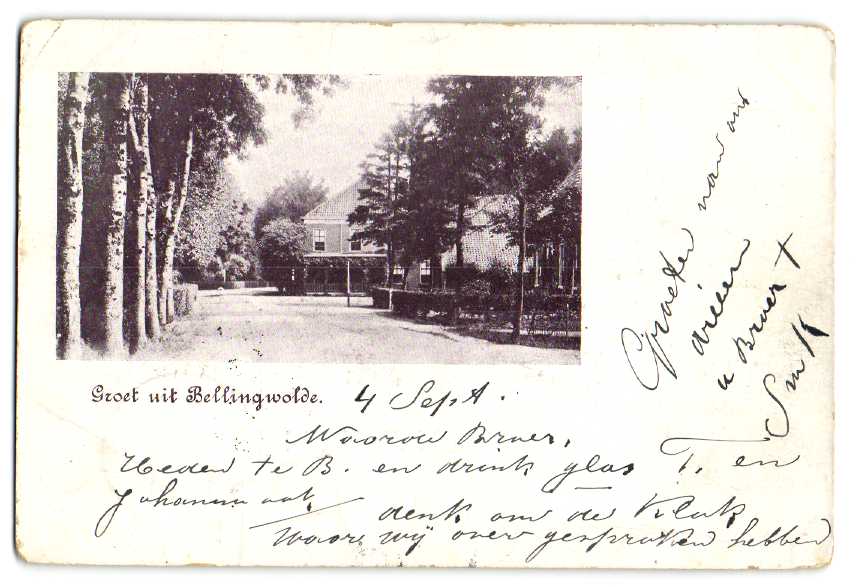 Groet uit Bellingwolde. 4 Sept.
Broer,
Heden te B. en drink glas T. en
Johanna ook
denk om de Klok
Waar wij over gesproken hebben
Groeten van
u Broer